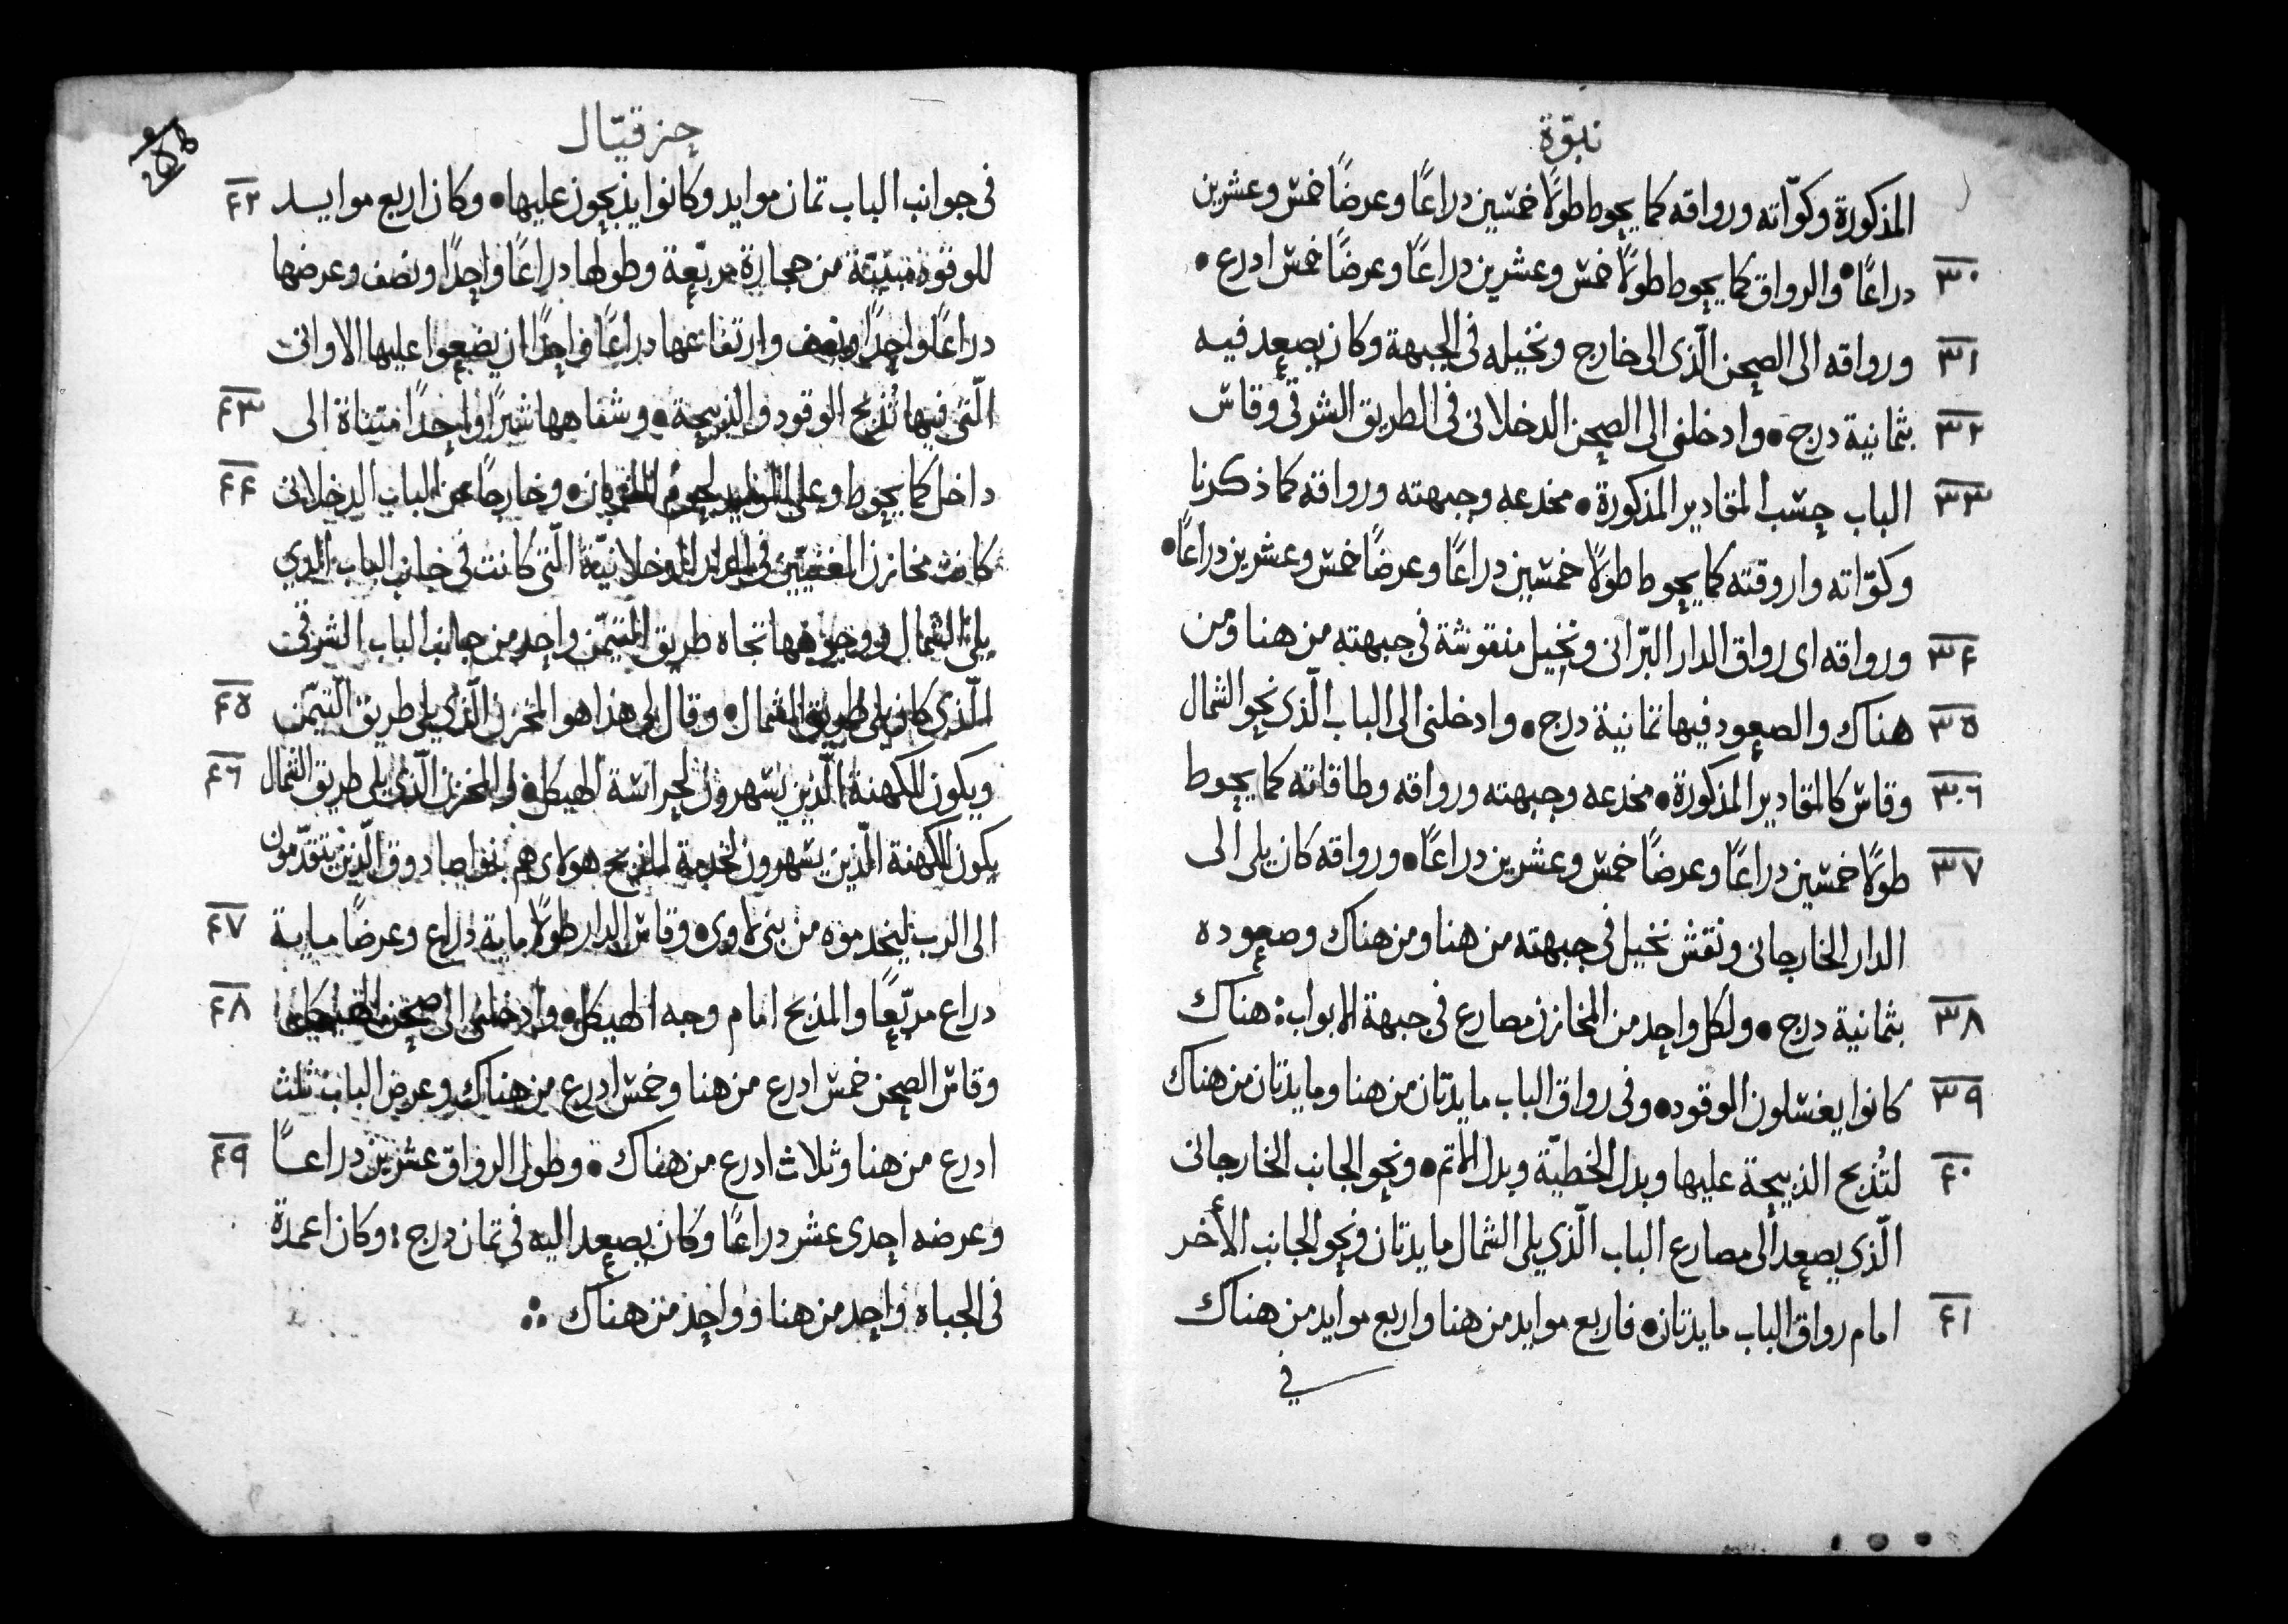 نبوّة
المذكورة وكوّاته ورواقه كما يحوط طولًا خمسين دراعًا وعرضًا خمس وعشرين
٣٠ دراعًا • والرواق كما يحوط طولًا خمس وعشرين دراعًا وعرضًا خمس ادرع •
٣١ ورواقه الى الصحن الّذى الى خارج ونخيله فى الجبهة وكان يصعد فيه
٣٢ بثمانية درج • وادخلنى الى الصحن الدخلانى فى الطريق الشرقى وقاس
٣٣ الباب حسب المقادير المذكورة • مخدعه وجبهته ورواقه كما ذكرنا
وكوّاته واروقته كما يحوط طولًا خمسين دراعًا وعرضًا خمس وعشرين دراعًا •
٣٤ ورواقه اى رواق الدار البّرانى ونخيل منقوشة فى جبهته من هنا ومن
٣٥ هناك والصعود فيها ثمانية درج • وادخلنى الى الباب الّذى نحو الشمال
٣٦ وقاس كالمقادير المذكورة • مخدعه وجبهته ورواقه وطاقاته كما يحوط
٣٧ طولًا خمسين دراعًا وعرضًا خمس وعشرين دراعًا • ورواقه كان يلى الى
الدار الخارجانى ونقش نخيل فى جبهته من هنا ومن هناك وصعوده
٣٨ بثمانية درج • ولكل واحد من المخازن مصارع فى جبهة الابواب : هناك
٣٩ كانوا يغسلون الوقود • وفى رواق الباب مايدتان من هنا ومايدتان من هناك
٤٠ لتُذبح الذبيحة عليها وبدل الخطيّة وبدل الاتم • ونحو الجانب الخارجانى
الّذى يصعد الى مصارع الباب الّذى يلى الشمال مايدتان ونحو الجانب الأخر
٤١ امام رواق الباب مايدتان • فاربع موايد من هنا واربع موايد من هناك
فى
حزقيّال
٤٢ فى جوانب الباب تمان موايد وكانوا يذبحون عليها • وكان اربع موايد
للوقود مبنيّة من حجارة مربّعة وطولها دراعًا واحدًا ونصف وعرضها
دراعًا واحدًا ونصف وارتفاعها دراعًا واحدًا ان يضعوا عليها الاوانى
٤٣ الّتى فيها تُذبح الوقود والذبيحة • وشفاهها شبرًا واحدًا متناة الى
٤٤ داخل كما يحوط وعلى الموايد لحوم القربان • وخارجًا عن الباب الدخلانى
كانت مخازن المغنيّين فى الدار الدخلانيّة الّتى كانت فى جانب الباب الذى
يلى الشمال ووجوهها تجاه طريق التيمّن واحد من جانب الباب الشرقى
٤٥ الّذى كان يلى طريق الشمال • وقال لى هذا هو المخزن الّذى يلى طريق التيمّن
٤٦ ويكون للكهنة الّذين يسهرون لحراسة الهيكل • والمخزن الّذى يلى طريق الشمال
يكون للكهنة الّذين يسهرون لخدمة المذبح هولاى هم بنو صادوق الّذين يتقدّمون
٤٧ الى الرب ليخدموه من بنى لاوى • وقاس الدار طولًا ماية دراع وعرضًا ماية
٤٨ دراع مربّعًا والمذبح امام وجه الهيكل • وادخلنى الى صحن الهيكل
وقاس الصحن خمس ادرع من هنا وخمس ادرع من هناك وعرض الباب ثلث
٤٩ ادرع من هنا وثلاث ادرع من هناك • وطول الرواق عشرين دراعًا
وعرضه احدى عشر دراعًا وكان يصعد اليه فى تمان درج : وكان اعمدة
فى الجباه واحد من هنا وواحد من هناك